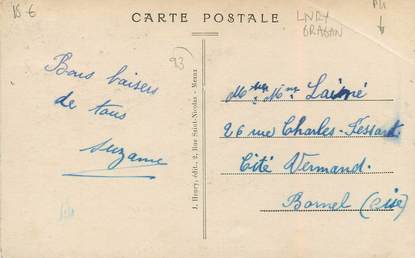 15 €
CARTE POSTALE
LNRY
GRAGAN
93
Bons baisers
de tous
Suzanne
J. Henry, édit., 2, Rue Saint-Nicolas - Meaux
Laimé
26 rue Charles-Fessart
Cité Vermand.
Bornel (Oise)